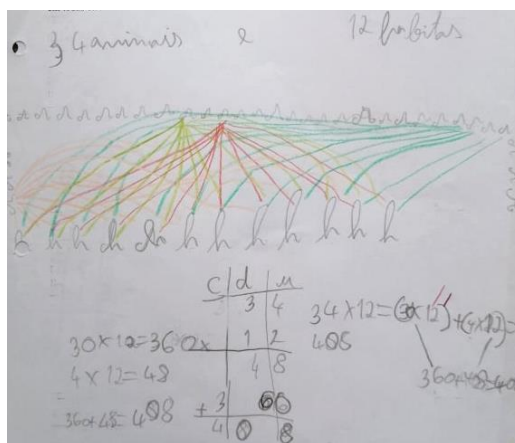 34 animais e 12 habitas
h h h h h h h h h h h h
c d u
3 4
x 1 2
4 8
+ 3 6 0
4 0 8
30×12=360
4×12=48
360+48=408
34×12=(30×12)+(4×12)=
408
360+48=40